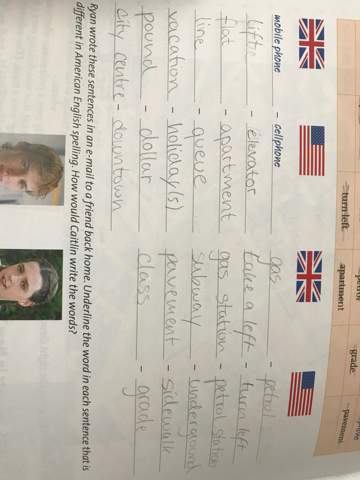 turn left
apartment
grade
pavement
mobile phone - cellphone
lift - elevator
flat - apartment
line - queue
vacation - holiday(s)
pound - dollar
city centre - downtown
gas - petrol
take a left - turn left
gas station - petrol station
subway - underground
pavement - sidewalk
class - grade
Ryan wrote these sentences in an e-mail to a friend back home. Underline the word in each sentence that is
different in American English spelling. How would Caitlin write the words?